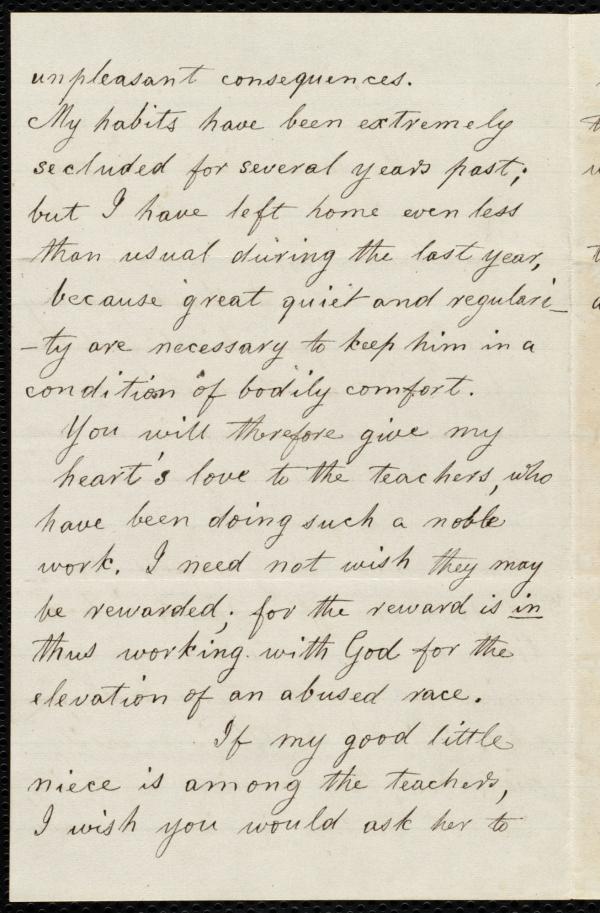 unpleasant consequences.
My habits have been extremely
secluded for several years past;
but I have left home even less
than usual during the last year,
because great quiet and regulari-
-ty are necessary to keep him in a
condition of bodily comfort.
You will therefore give my
heart's love to the teachers, who
have been doing such a noble
work. I need not wish they may
be rewarded; for the reward is in
thus working with God for the
elevation of an abused race.
If my good little
niece is among the teachers,
I wish you would ask her to